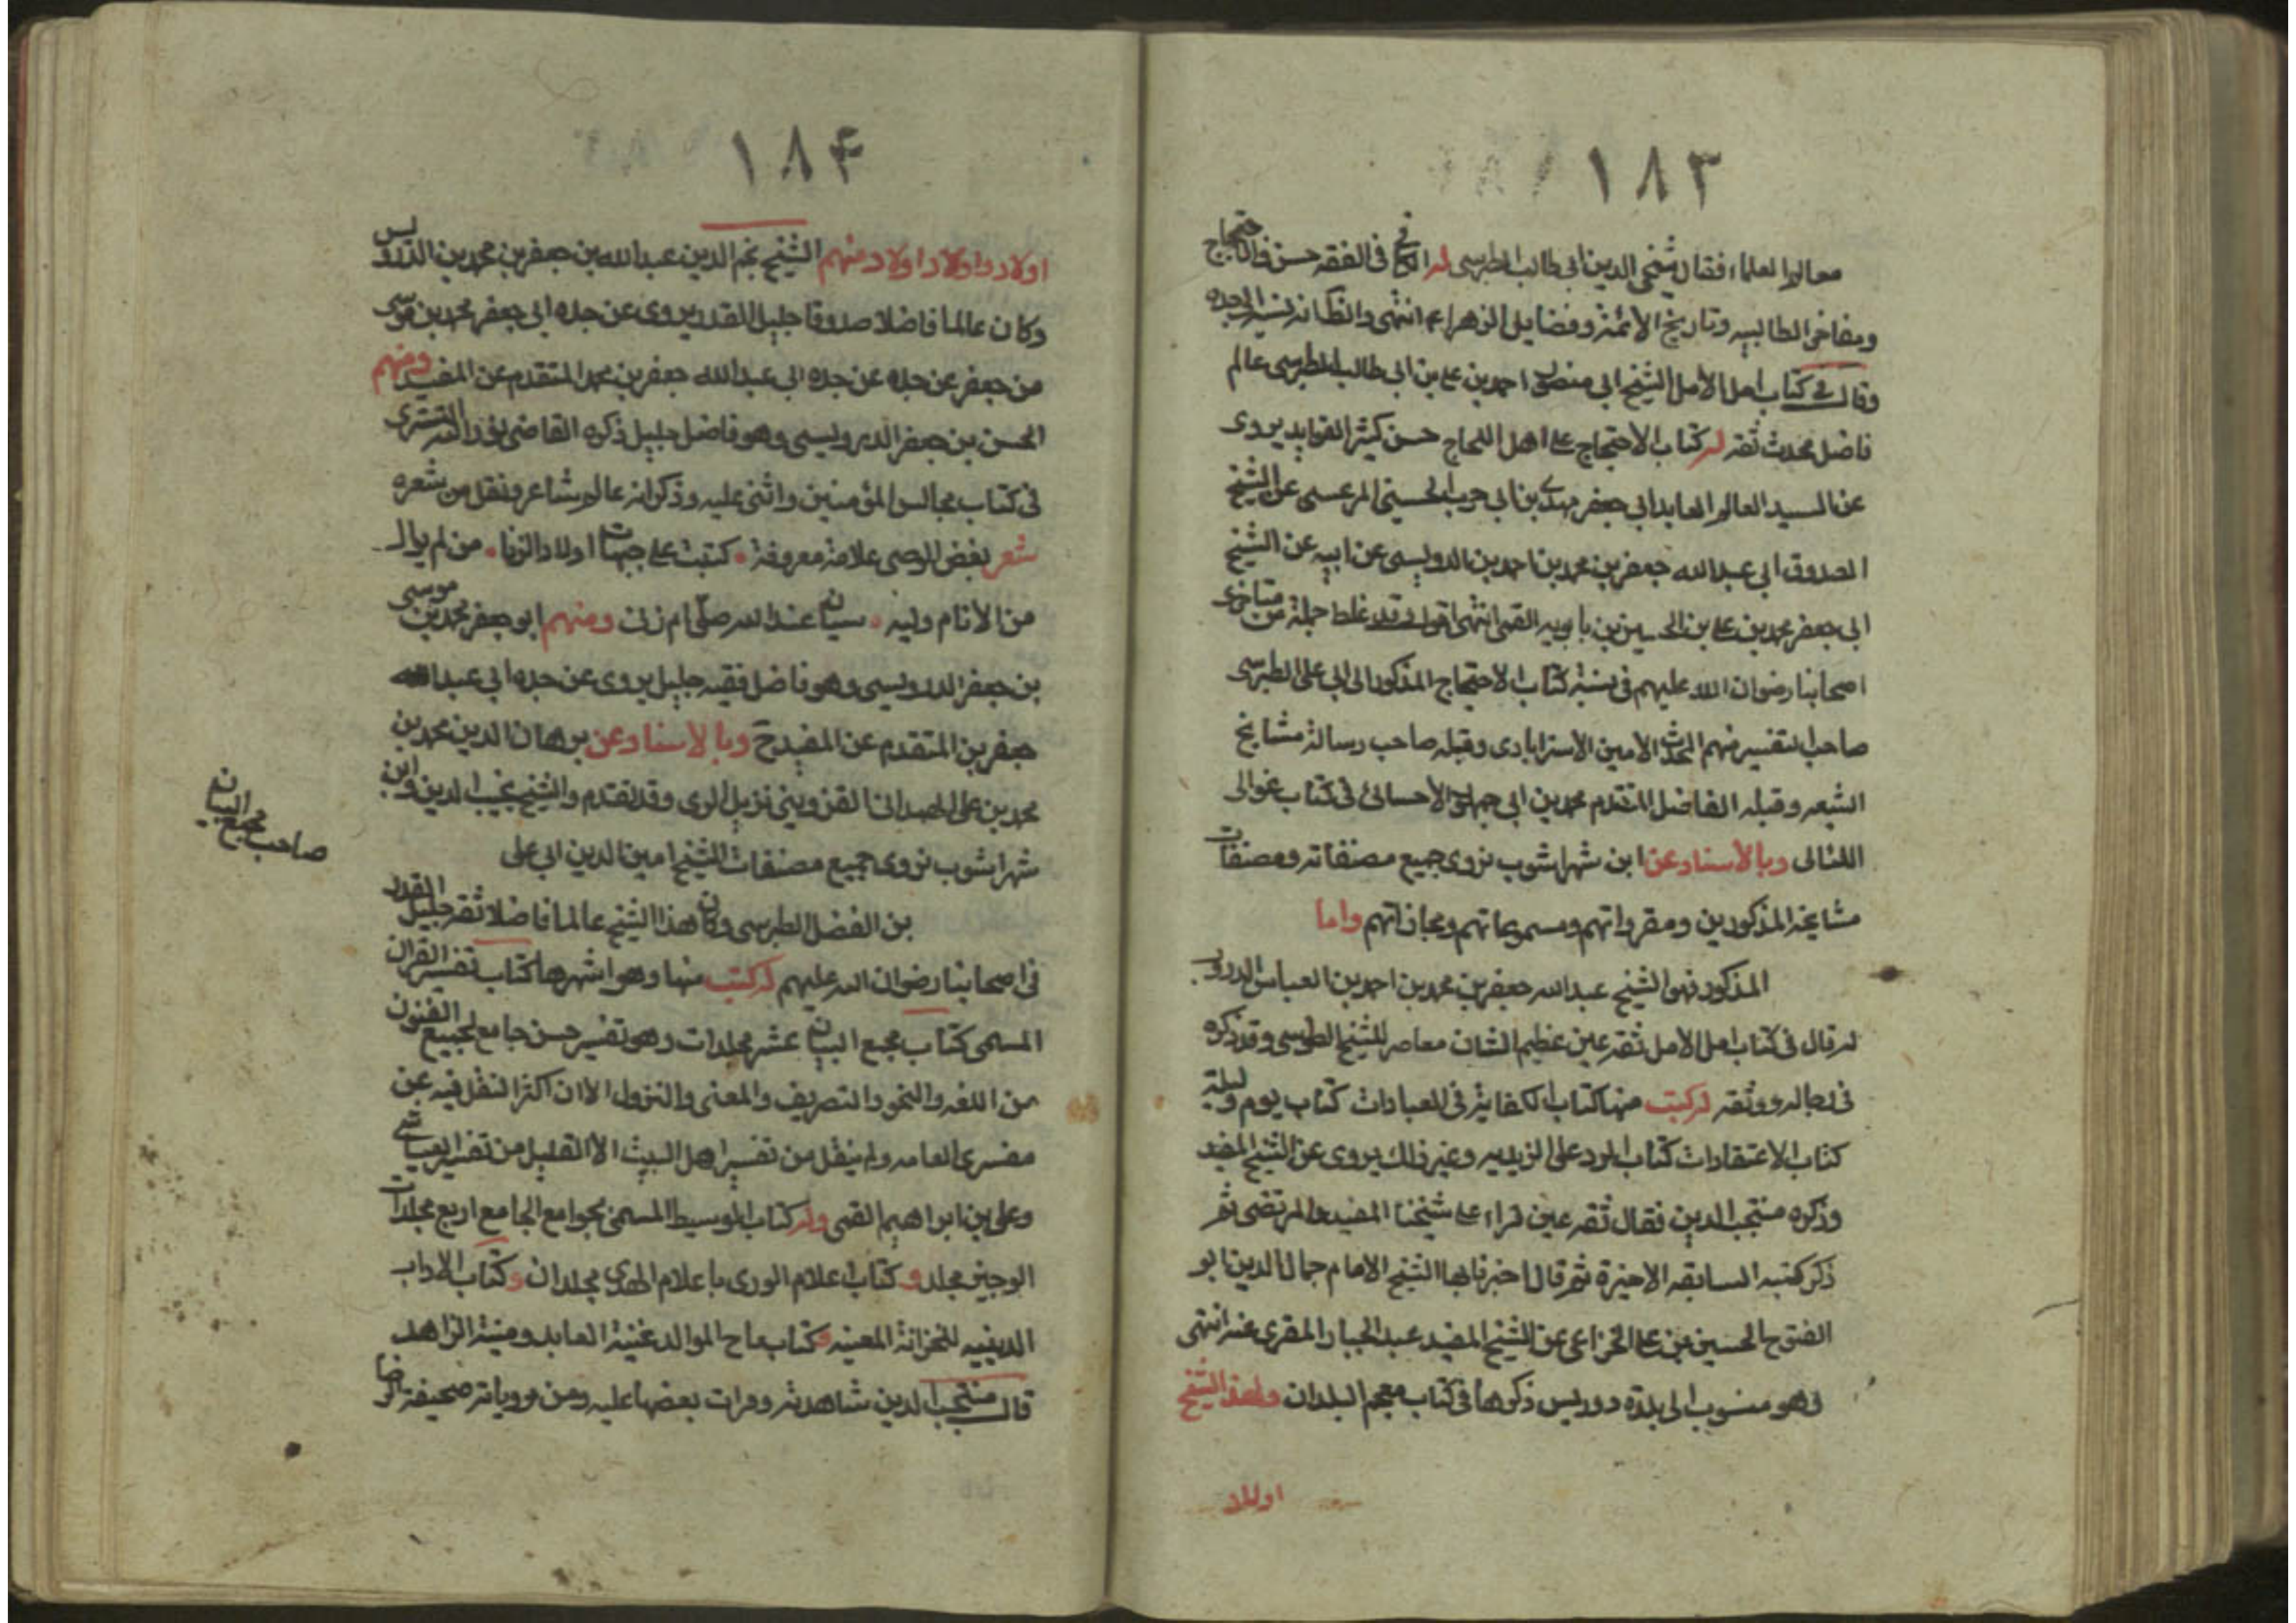 ١٨٣
معالم العلماء فقال شيخي الدين ابي طالب الطبرسي له الكافي في الفقه حسن والاحتجاج
ومفاخر الطالبيه وتاريخ الائمة وفضايل الزهراء ع انتهى والظ انه نسبه الى جده
وقال في كتاب امل الامل الشيخ ابي منصور احمد بن علي بن ابي طالب الطبرسي عالم
فاضل محدث ثقه له كتاب الاحتجاج على اهل اللجاج حسن كثير الفوايد يروى
عن السيد العالم العابد ابي جعفر مهدي بن ابي حرب الحسيني المرعسى عن الشيخ
الصدوق ابي عبد الله جعفر بن محمد بن احمد بن الدوريسي عن ابيه عن الشيخ
ابي جعفر محمد بن علي بن الحسين بن بابويه القمي انتهى اقول وقد غلط جملة من متاخرى
اصحابنا رضوان الله عليهم في نسبة كتاب الاحتجاج المذكور الى ابي على الطبرسي
صاحب التفسير منهم المحدث الامين الاسترابادى وقبله صاحب رسالة مشايخ
الشيعه وقبله الفاضل المتقدم محمد بن ابي جمهور الاحسائى في كتاب غوالى
اللئالى وبالاسناد عن ابن شهراشوب نروى جميع مصنفاته ومصنفات
مشايخه المذكورين ومقرواتهم ومسموعاتهم ومجازاتهم واما
المذكور فهو الشيخ عبد الله جعفر بن محمد بن احمد بن العباس الدوري
له قال في كتاب امل الامل ثقه عين عظيم الشان معاصر للشيخ الطوسي وقد ذكره
في رجاله ووثقه له كتب منها كتاب الكفاية في العبادات كتاب يوم وليلة
كتاب الاعتقادات كتاب الرد على الزيديه وغير ذلك يروى عن الشيخ المفيد
وذكره منتجب الدين فقال ثقه عين قراء على شيخنا المفيد والمرتضى ثم
ذكر كتبه السابقه الاخيرة ثم قال اخبرنا بها الشيخ الامام جمال الدين ابو
الفتوح الحسين بن علي الخزاعى عن الشيخ المفيد عبد الجبار المقرى عنه انتهى
وهو منسوب الى بلدة دوريس ذكرها في كتاب معجم البلدان ولهذا الشيخ
اولاد
١٨۴
اولاد واولاد اولاد منهم الشيخ نجم الدين عبد الله بن جعفر بن محمد بن الدوريس
وكان عالما فاضلا صدوقا جليل القدر يروى عن جده ابي جعفر محمد بن موسى
من جعفر عن جده عن جده ابي عبد الله جعفر بن محمد المتقدم عن المفيد ومنهم
الحسن بن جعفر الدوريسي وهو فاضل جليل ذكره القاضي نور الله التسترى
في كتاب مجالس المؤمنين واثنى عليه وذكر انه عالم شاعر ونقل من شعره
شعر بغض الوصى علامة معروفة • كتبت على جبهات اولاد الزنا • من لم يوال
من الانام وليه • سيان عند الله صلى ام زنى ومنهم ابو جعفر محمد بن موسى
بن جعفر الدوريسي وهو فاضل فقيه جليل يروى عن جده ابي عبد الله
جعفر بن المتقدم عن المفيد ح وبالاسناد عن برهان الدين محمد بن
محمد بن على الحمدانى القزوينى نزيل الرى وقد تقدم والشيخ نجيب الدين وابن
شهراشوب نروى جميع مصنفات الشيخ امين الدين ابي على
بن الفضل الطبرسي وكان هذا الشيخ عالما فاضلا ثقه جليل القدر
صاحب مجمع البيان
في اصحابنا رضوان الله عليهم له كتب منها وهو اشهرها كتاب تفسير القران
المسمى كتاب مجمع البيان عشر مجلدات وهو تفسير حسن جامع لجميع الفنون
من اللغه والنحو والتصريف والمعنى والنزول الا ان اكثر النقل فيه عن
مفسرى العامه ولم ينقل من تفسير اهل البيت الا القليل من تفسير العياشى
وعلى بن ابراهيم القمى وله كتاب الوسيط المسمى بجوامع الجامع اربع مجلدات
الوجيز مجلد و كتاب اعلام الورى باعلام الهدى مجلدان و كتاب الاداب
الدينيه للخزانة المعينه و كتاب عاح الموالد غنية العابد ومنية الزاهد
قال منتجب الدين شاهدته وقرات بعضها عليه ومن مروياته صحيفة الرضا